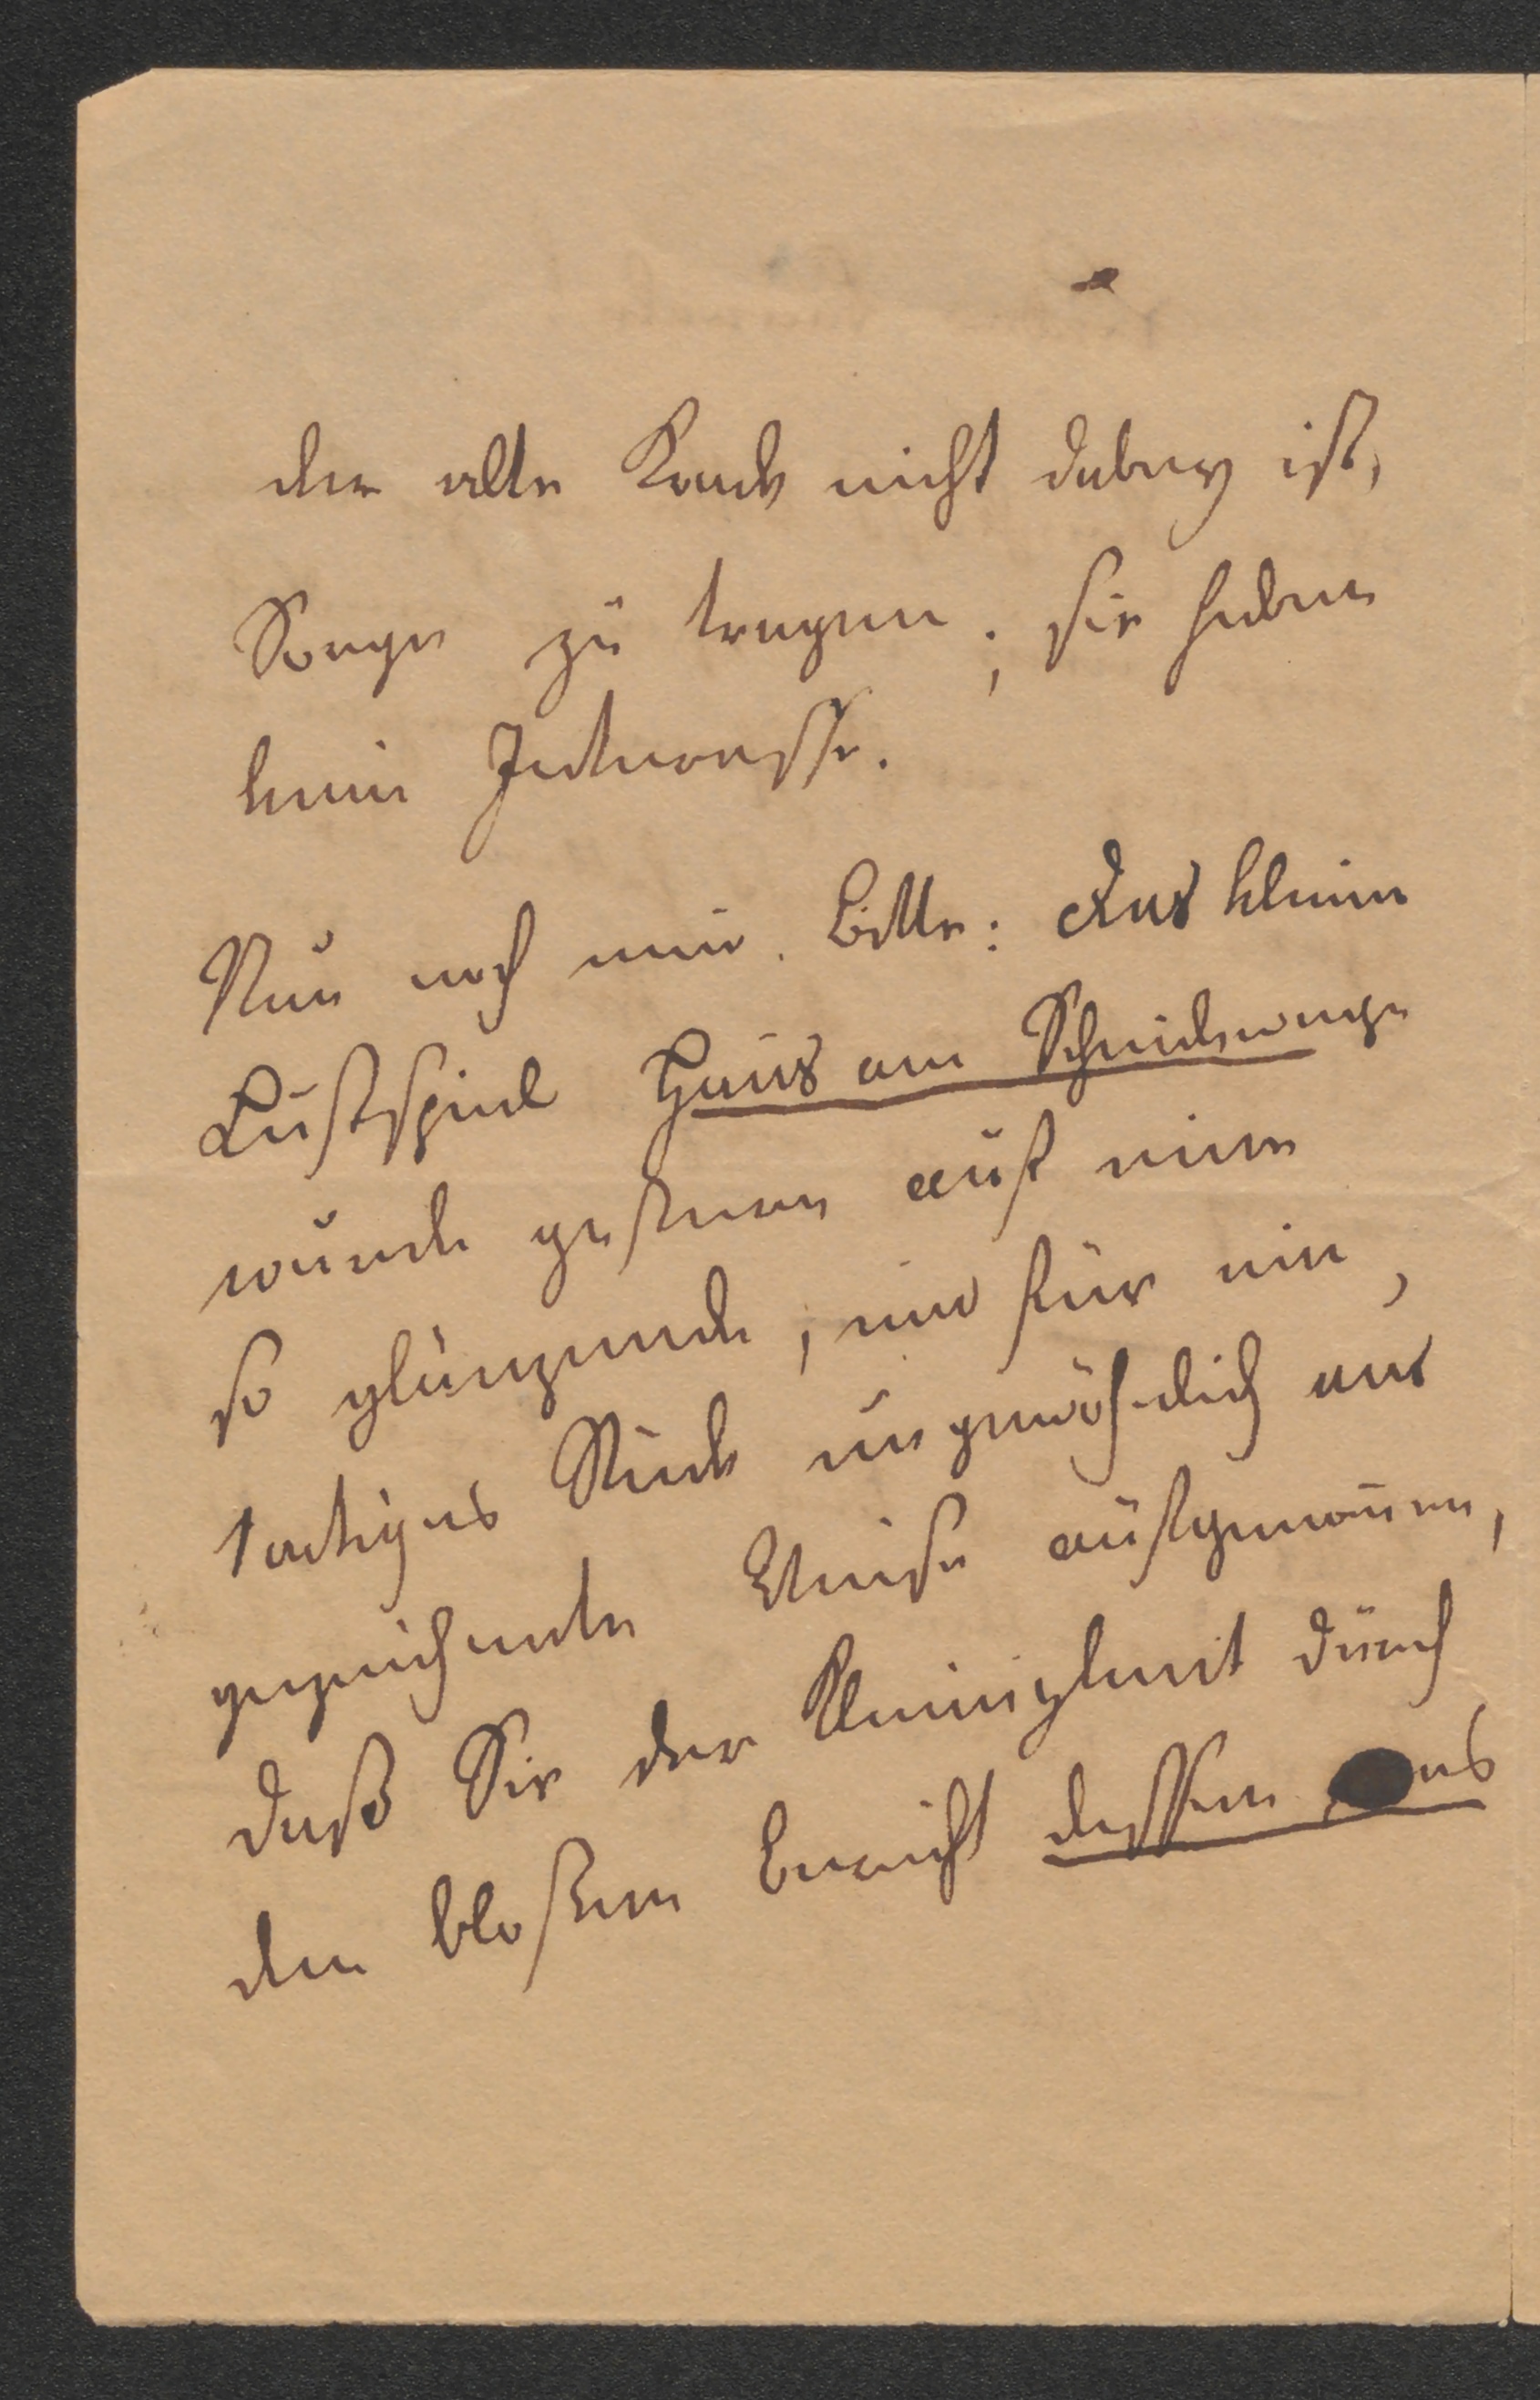 der alte Kauds nicht dabey ist,
Sorge zu tragen; sie haben
kein Interesse.
Nun noch eine Bitte: Das kleine
Lustspiel Haus am Scheidewege
wurde gestern auf eine
so glänzende, und für ein,
1actiges Stück ungewöhnlich aus
gezeichnete Weise aufgenom̅en,
daß Sie der Kleinigkeit durch
den bloßen Bericht dessen